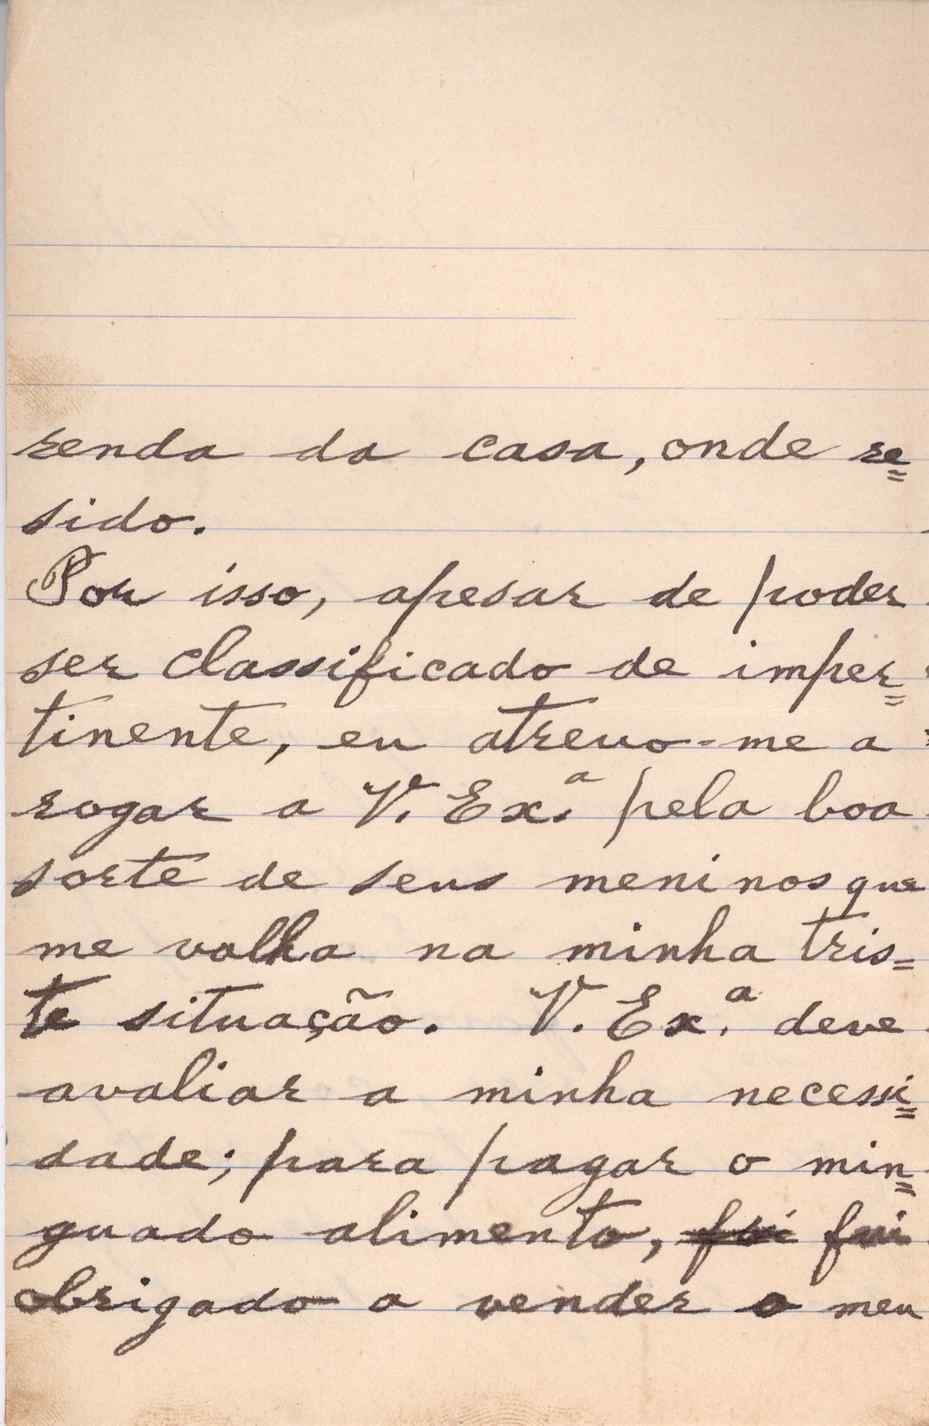 renda da casa, onde re=
sido.
Por isso, apesar de poder
ser classificado de imper=
tinente, eu atrevo-me a
rogar a V. Ex.ª pela boa
sorte de seus meninos que
me valha na minha tris=
te situação. V. Ex.ª deve
avaliar a minha necessi=
dade; para pagar o min=
guado alimento, foi fui
obrigado a vender o meu